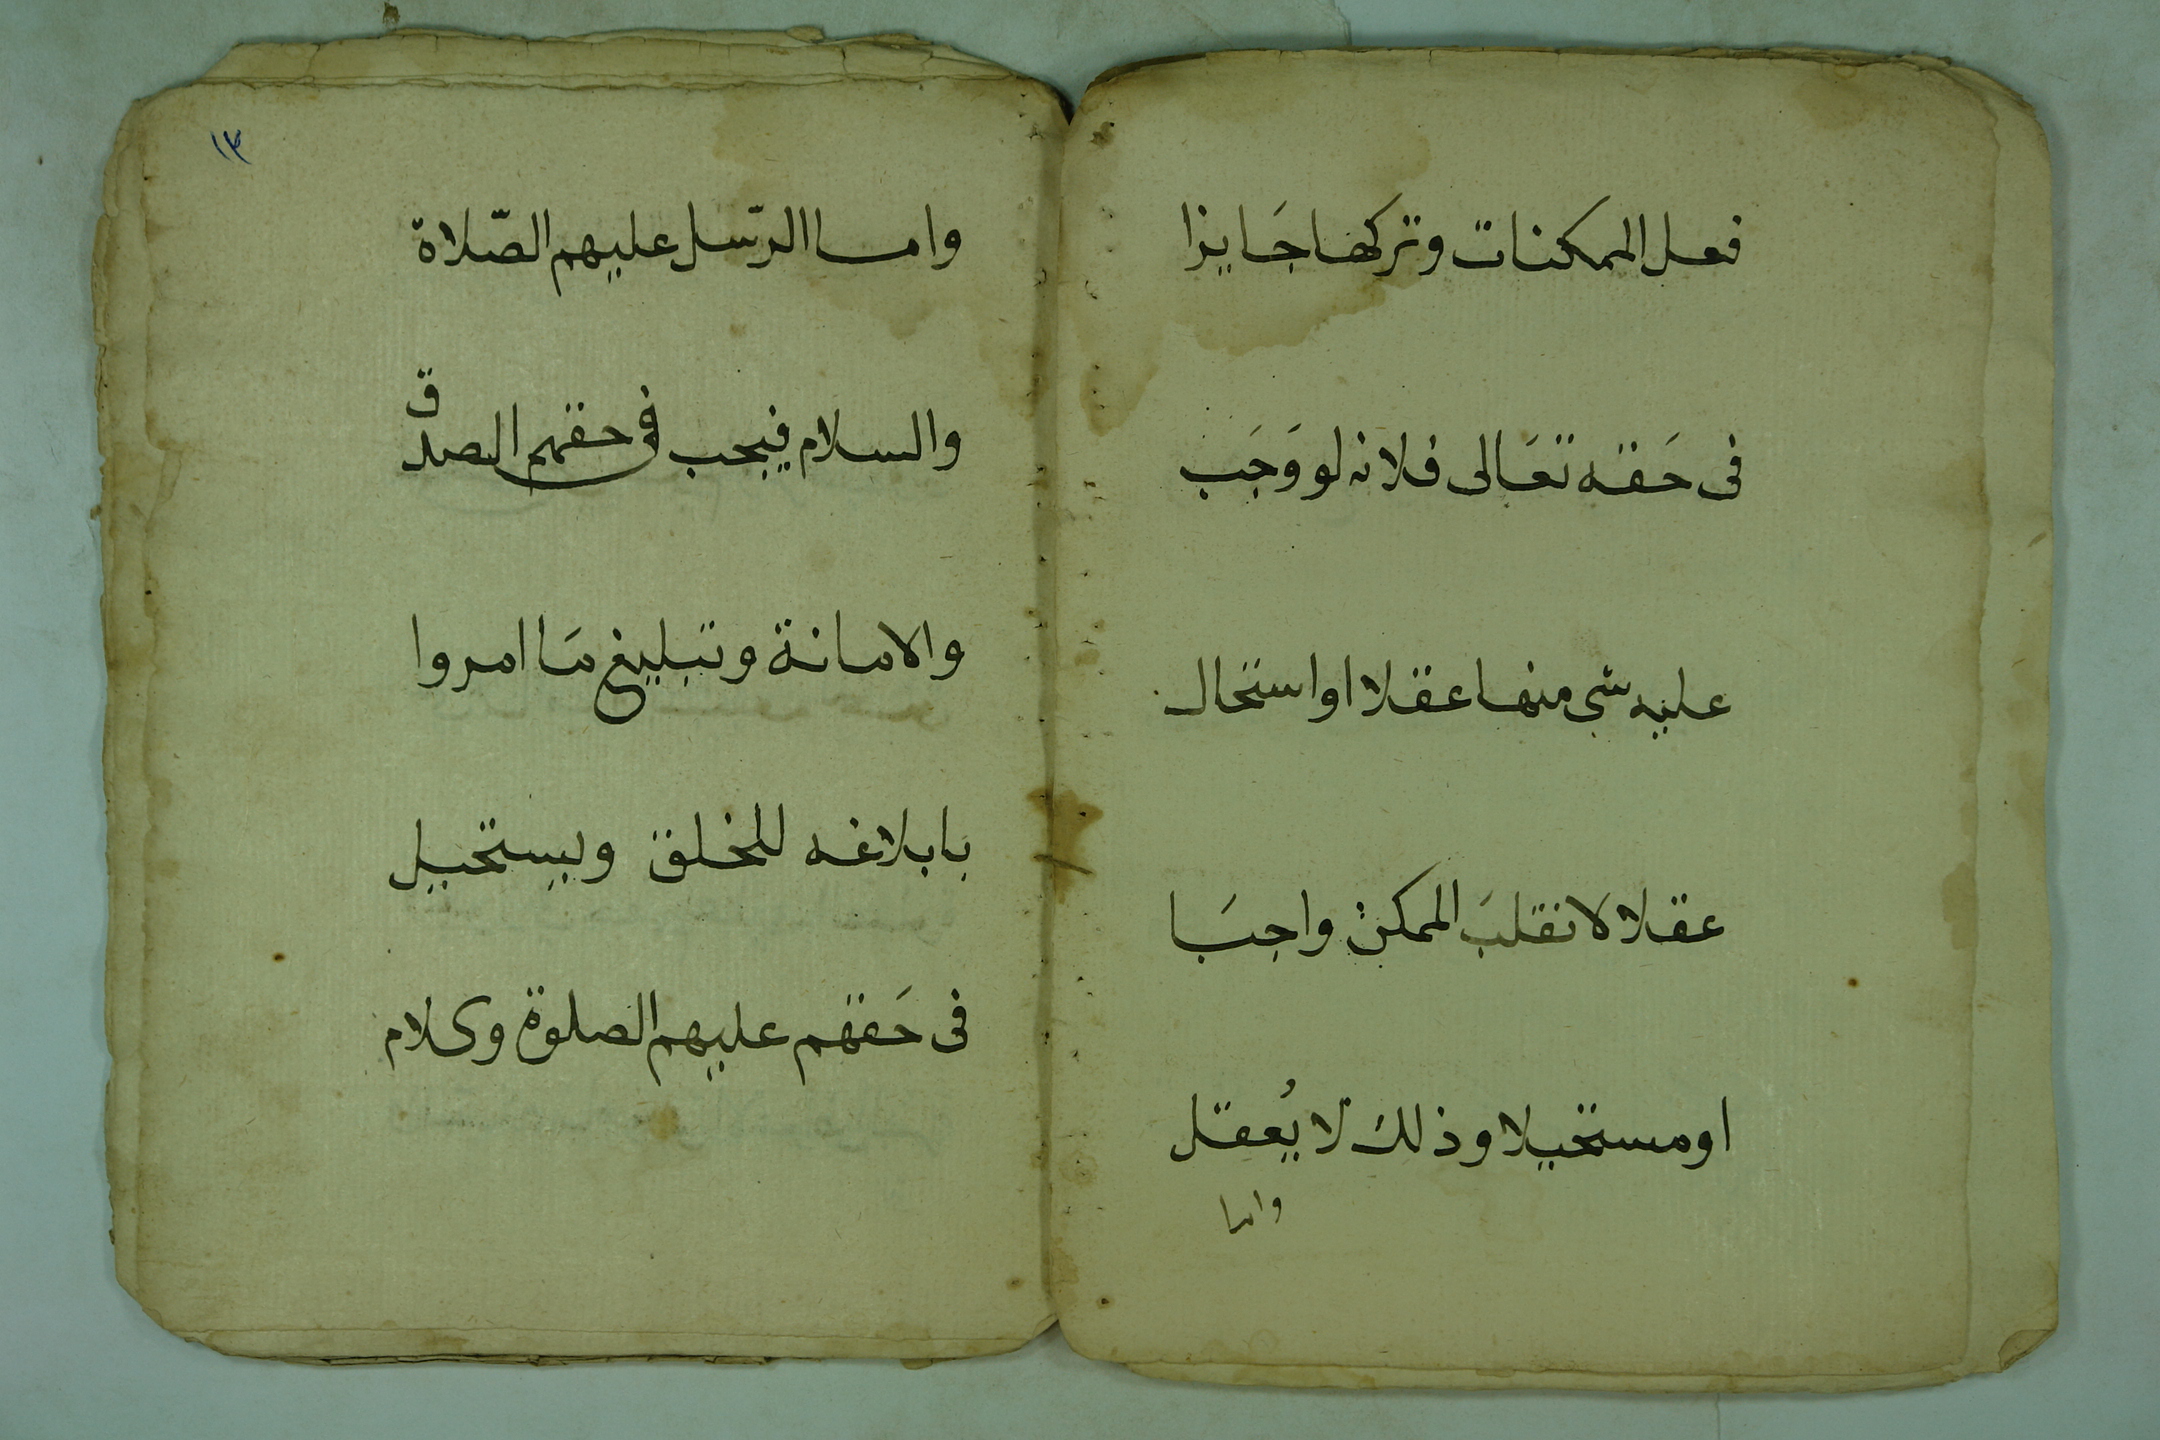 فعل الممكنات وتركها جَايزا
فى حَقه تعَالى فلانه لو وَجَب
عليه شى منها عقلا او استحال
عقلا لانقلبَ الممكن واجبَا
او مستحيلا وذلك لا يُعقل
واما
١٣
واما الرّسل عليهم الصّلاة
والسلام فيجب فى حقهم الصدق
والامانة وتبليغ مَا امروا
بابلاغه للخلق ويستحيل
فى حَقهم عليهم الصلوة وسلام